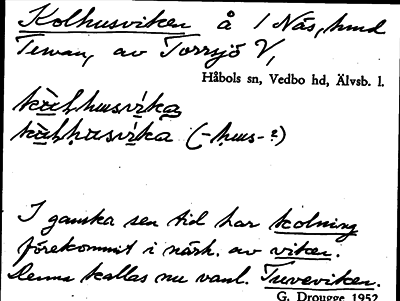 Kolhusviken å 1 Näs, hmd
Tewan, av Torrsjö V,
Håbols sn, Vedbo hd, Älvsb. l.
kàl̥husvíka
kàl̥husvíka (-hus-?)
I ganska sen tid har kolning
förekommit i närh. av viken.
Denna kallas nu vanl. Tuveviken.
G. Drougge 1952